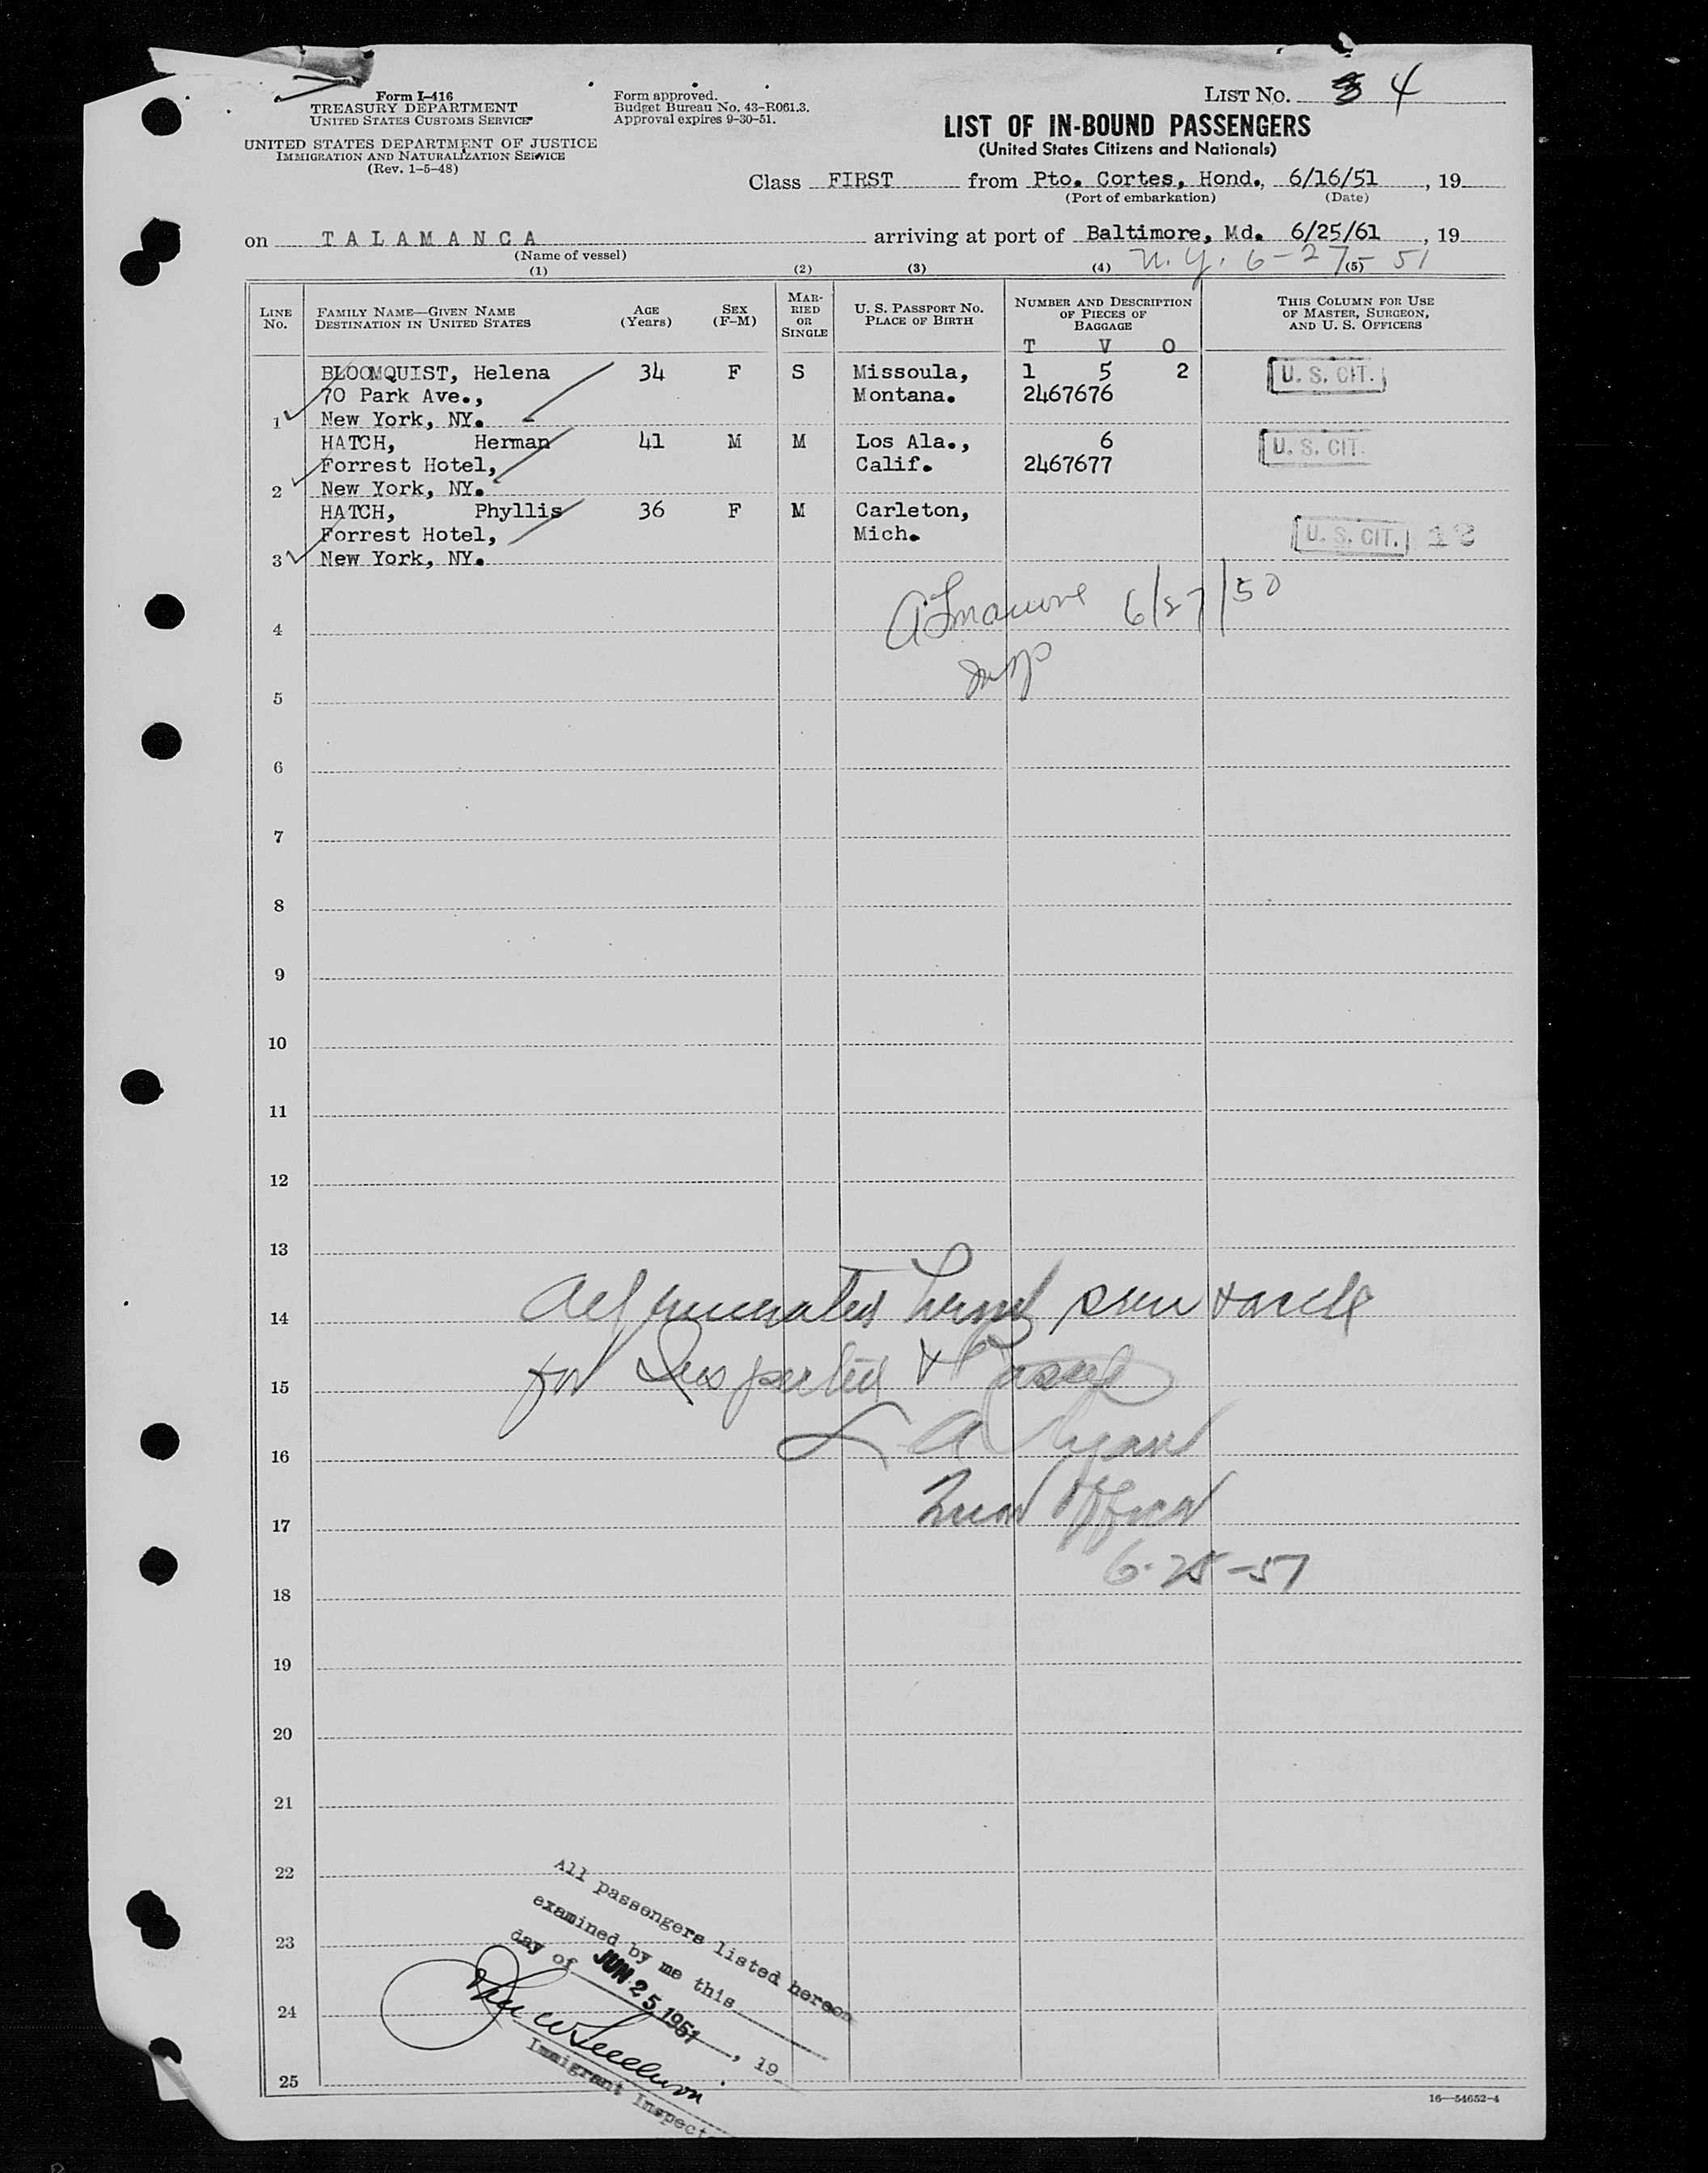 Form I-416
TREASURY DEPARTMENT
UNITED STATES CUSTOMS SERVICE
UNITED STATES DEPARTMENT OF JUSTICE
IMMIGRATION AND NATURALIZATION SERVICE
(Rev. 1-5-48)
Form approved.
Budget Bureau No. 43-R061.3.
Approval expires 9-30-51.
LIST No. 4
LIST OF IN-BOUND PASSENGERS
(United States Citizens and Nationals)
Class FIRST from Pto. Cortes, Hond., 6/16/51, 19
(Port of embarkation) (Date)
on TALAMANCA arriving at port of Baltimore, Md. 6/25/61, 19
(Name of vessel) N.Y. 6-27-51
(1) (2) (3) (4) (5)
LINE No. FAMILY NAME—GIVEN NAME DESTINATION IN UNITED STATES AGE (Years) SEX (F-M) MARRIED OR SINGLE U. S. PASSPORT NO. PLACE OF BIRTH NUMBER AND DESCRIPTION OF PIECES OF BAGGAGE THIS COLUMN FOR USE OF MASTER, SURGEON, AND U. S. OFFICERS
T V O
BLOOMQUIST, Helena 34 F S Missoula, 1 5 2 U. S. CIT.
70 Park Ave., Montana. 2467676
1 New York, NY.
HATCH, Herman 41 M M Los Ala., 6 U. S. CIT.
Forrest Hotel, Calif. 2467677
2 New York, NY.
HATCH, Phyllis 36 F M Carleton,
Forrest Hotel, Mich. U. S. CIT. 18
3 New York, NY.
6/27/50
4
Insp
5
6
7
8
9
10
11
12
13
14
for Inspected &
15
16
17
6-25-51
18
19
20
21
22
All passengers listed hereon
examined by me this
day of JUN 25 1951, 19
Immigrant Inspect
23
24
25
16—54652-4